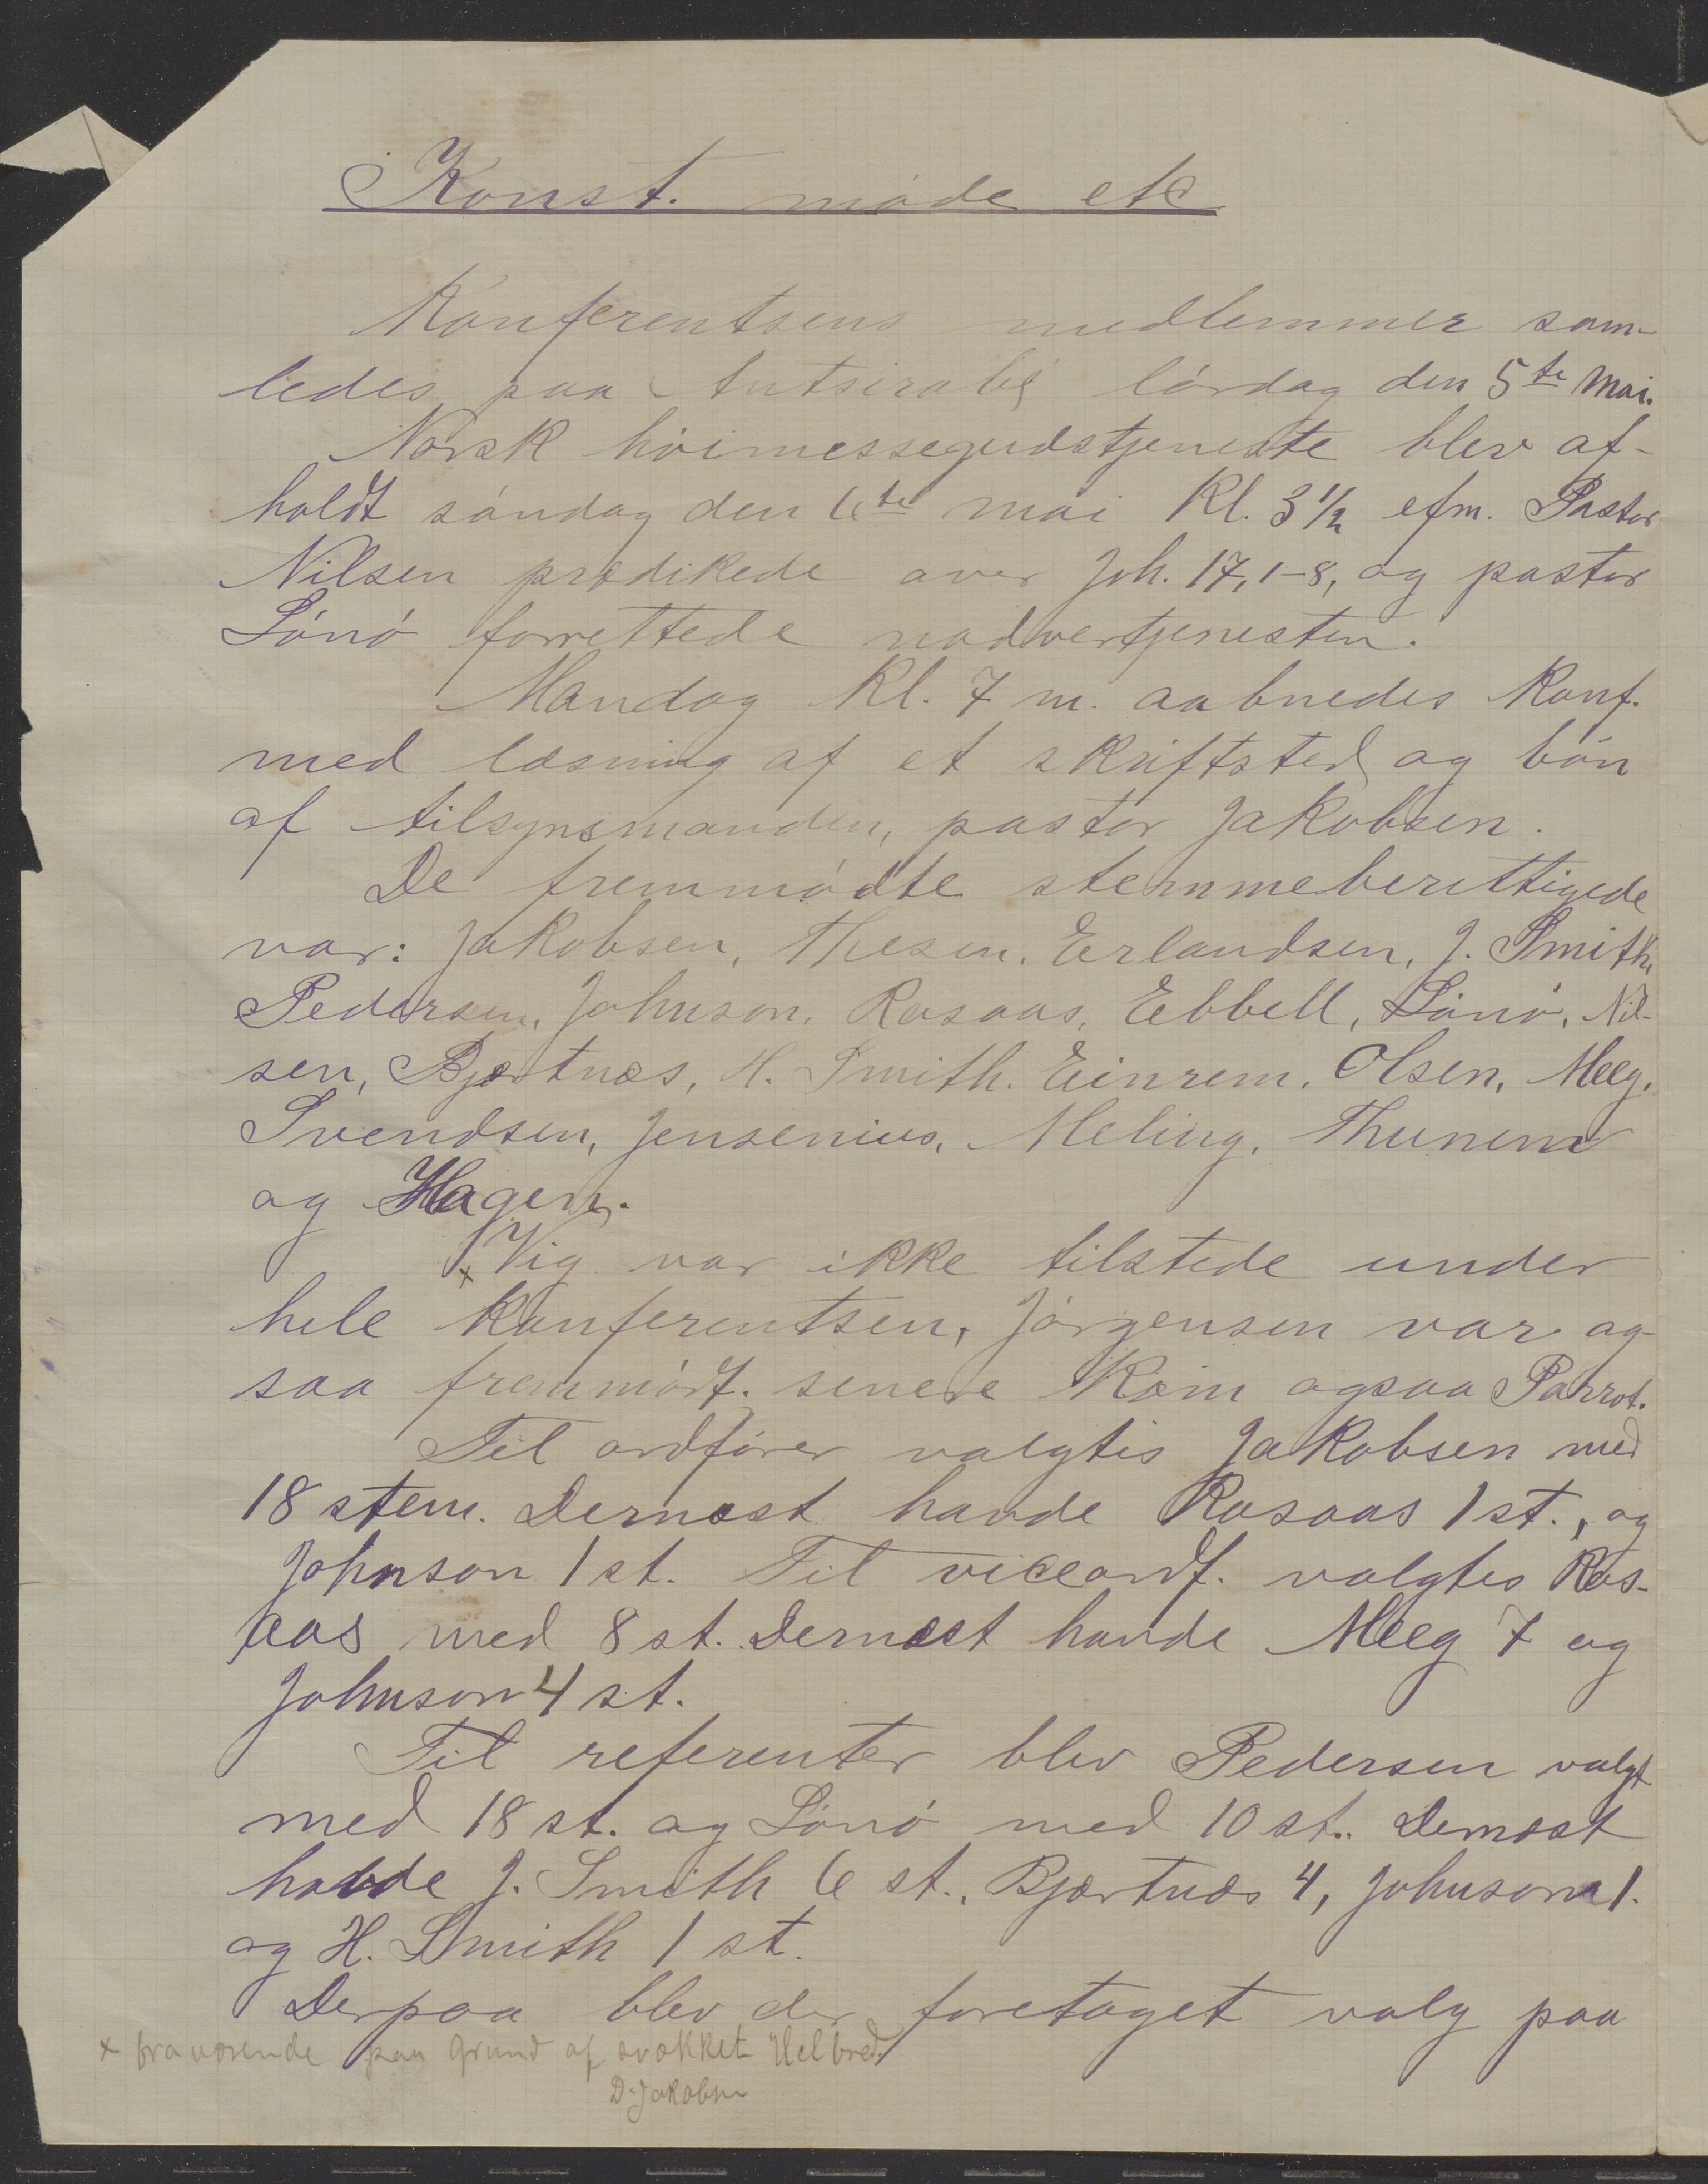 Konst. møde etc
Konferentsens medlemmer sam-
ledes paa Antsirabé lørdag den 5te mai.
Norsk høimessegudstjeneste blev af-
holdt søndag den 6te mai Kl. 3 1/2 efm. Pastor
Nilsen prædikede over Joh. 17, 1-8, og pastor
Lønø forrettede nadvertjenesten.
Mandag Kl. 7 m. aabnedes Konf.
med læsning af et skriftsted og bøn
af tilsynsmanden, pastor Jakobsen.
De fremmødte stemmeberettigede
var: Jakobsen, Thesen, Erlandsen, J. Smith,
Pedersen, Johnson, Rosaas, Ebbell, Lønø, Nil-
sen, Bjertnæs, H. Smith. Einrem, Olsen, Meeg,
Svendsen, Jensenius, Meling, Thunem
og Hagen.
x Vig var ikke tilstede under
hele Konferentsen, Jørgensen var og-
saa fremmødt. senere Kom ogsaa Parrot.
Til ordfører valgtes Jakobsen med
18 stem. Dernæst havde Rosaas 1 st., og
Johnson 1 st. Til viceordf. valgtes Ros-
aas med 8 st. Dernæst havde Meeg 7 og
Johnson 4 st.
Til referenter blev Pedersen valgt
med 18 st. og Lønø med 10 st. Dernæst
havde J. Smith 6 st., Bjertnæs 4, Johnson 1.
og H. Smith 1 st.
Derpaa blev der foretaget valg paa
x fraværende paa Grund af svækket Helbred.
D. Jakobsen